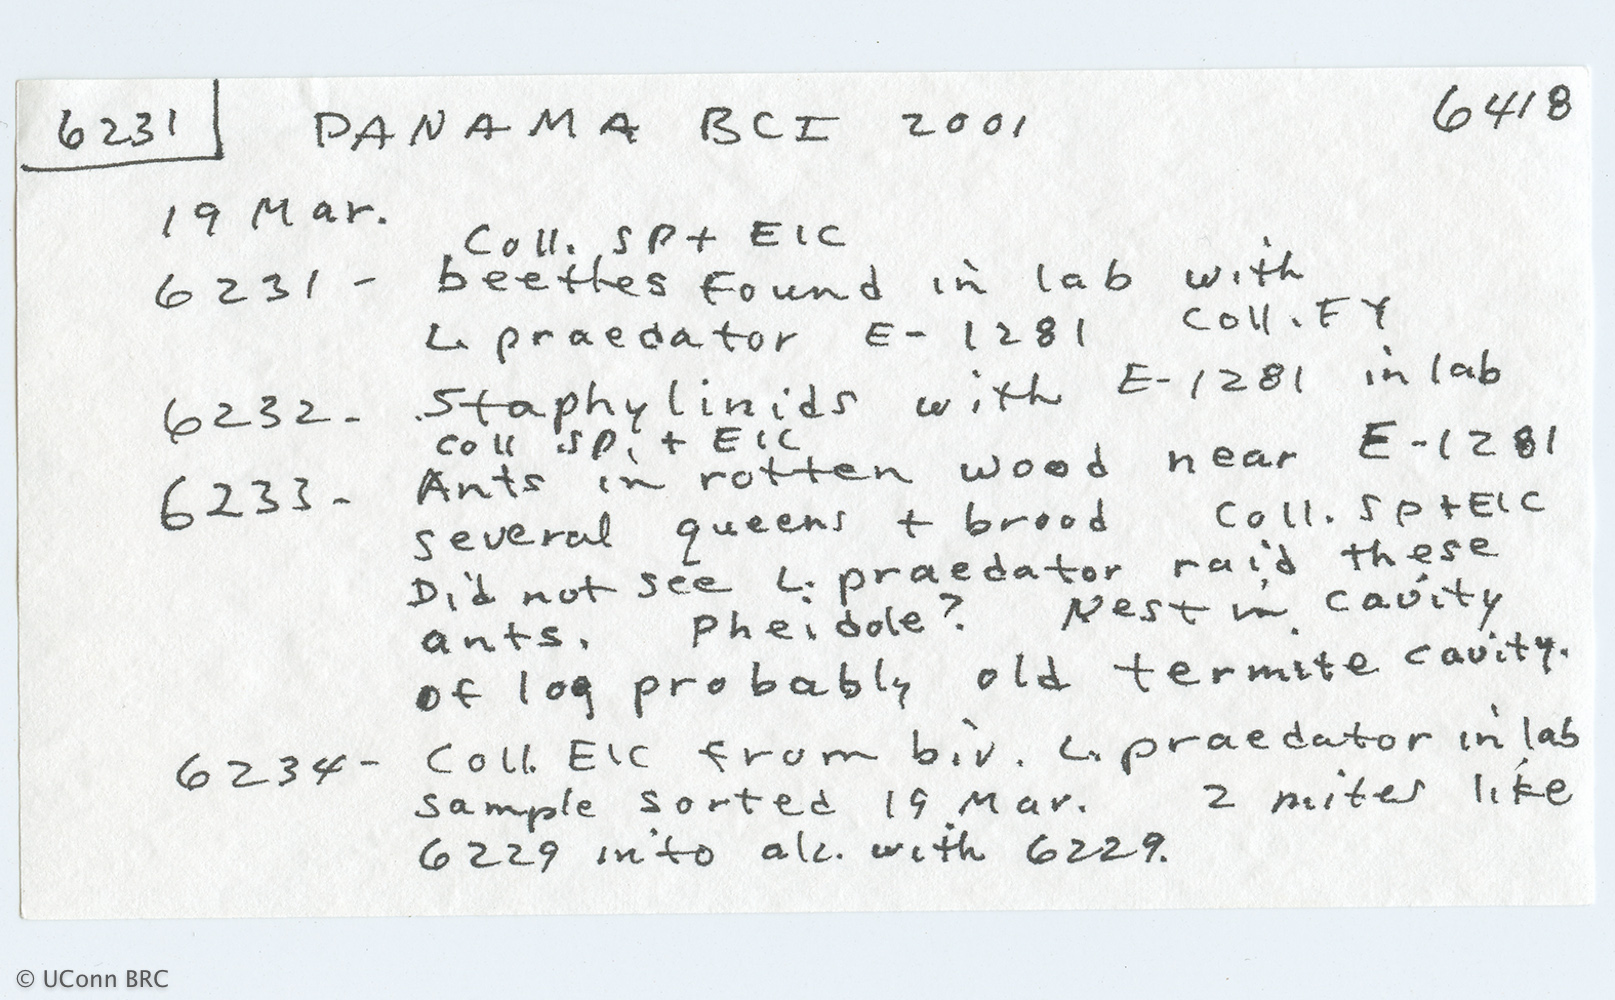 6231 PANAMA BCI 2001 6418
19 Mar.
Coll. SP + EIC
6231 - beetles found in lab with
L. praedator E-1281 Coll. FY
6232 - Staphylinids with E-1281 in lab
coll SP. + EIC
6233 - Ants in rotten wood near E-1281
several queens + brood Coll. SP + EIC
Did not see L. praedator raid these
ants. Pheidole? Nest in cavity
of log probably old termite cavity.
6234 - Coll. EIC from biv. L. praedator in lab
sample sorted 19 Mar. 2 mites like
6229 into alc. with 6229.
© UConn BRC